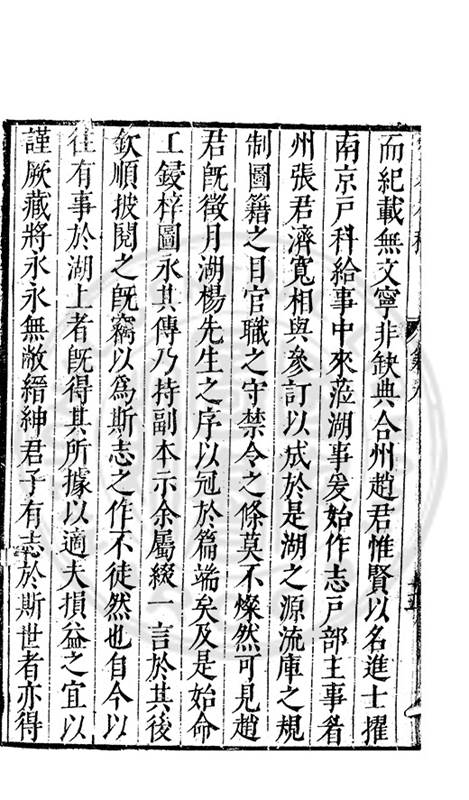 而紀載無文寧非缺典合州趙君惟賢以名進士擢
南京戸科給事中來蒞湖事爰始作志戸部主事眉
州張君濟寬相與參訂以成於是湖之源流庫之規
制圖籍之目官職之守禁令之條莫不燦然可見趙
君旣徵月湖楊先生之序以冠於篇端矣及是始命
工鋟梓圖永其傳乃持副本示余屬綴一言於其後
欽順披閱之旣竊以爲斯志之作不徒然也自今以
徃有事於湖上者旣得其所據以適夫損益之宜以
謹厥藏將永永無敝縉紳君子有志於斯世者亦得